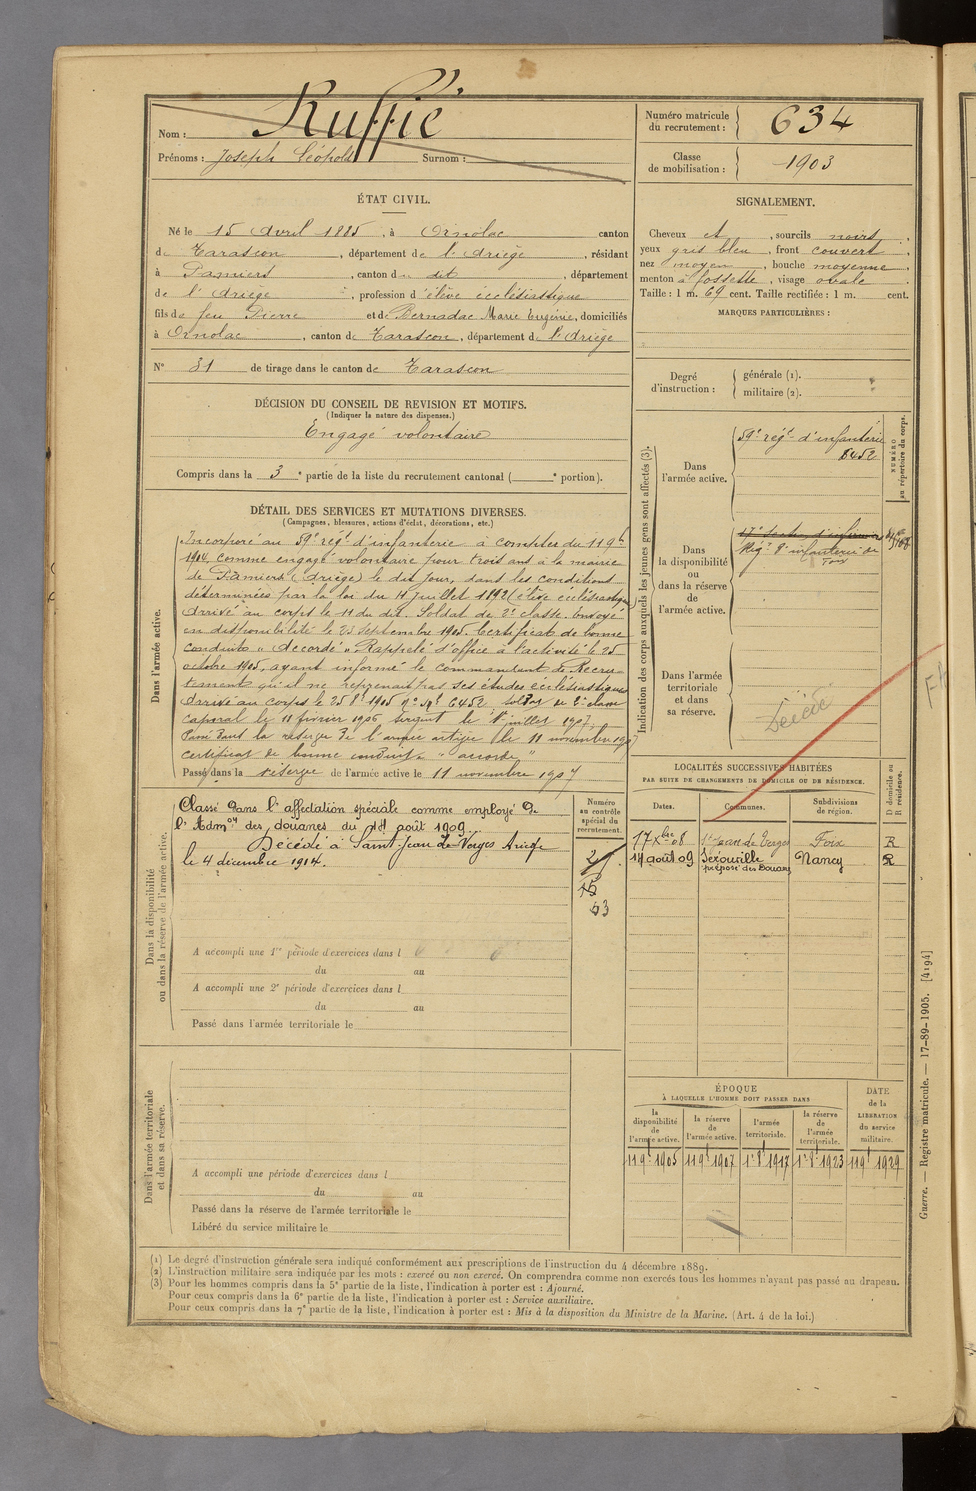 Nom : Ruffié
Prénoms : Joseph Léopold Surnom :
Numéro matricule du recrutement : 634
Classe de mobilisation : 1903
ÉTAT CIVIL.
Né le 15 Avril 1885, à Ornolac canton
de Tarascon, département de l'Ariège, résidant
à Pamiers, canton du dit, département
de l'Ariège, profession d'élève écclésiastique
fils de feu Pierre et de Bernadac Marie Eugénie, domiciliés
à Ornolac, canton de Tarascon, département de l'Ariège
N° 31 de tirage dans le canton de Tarascon
SIGNALEMENT.
Cheveux et, sourcils noirs,
yeux gris bleu, front couvert,
nez moyen, bouche moyenne,
menton à fossette, visage ovale.
Taille : 1 m. 69 cent. Taille rectifiée : 1 m. cent.
MARQUES PARTICULIÈRES :
Degré d'instruction : générale (1).
militaire (2).
DÉCISION DU CONSEIL DE REVISION ET MOTIFS.
(Indiquer la nature des dispenses.)
Engagé volontaire
Compris dans la 3e partie de la liste du recrutement cantonal ( e portion).
DÉTAIL DES SERVICES ET MUTATIONS DIVERSES.
(Campagnes, blessures, actions d'éclat, décorations, etc.)
Dans l'armée active.
Incorporé au 59e régt d'infanterie à compter du 11 9bre
1904, comme engagé volontaire pour trois ans à la mairie
de Pamiers (Ariège) le dit jour, dans les conditions
déterminées par la loi du 11 juillet 1892 (élève écclésiastique)
Arrivé au corps le 11 du dit. Soldat de 2e classe. Envoyé
en disponibilité le 23 septembre 1905. Certificat de bonne
conduite "Accordé". Rappelé d'office à l'activité le 25
octobre 1905, ayant informé le commandant de Recru-
tement qu'il ne reprenait pas ses études écclésiastiques
Arrivé au corps le 25 8bre 1905 no ml 6452, soldat de 2e classe
caporal le 11 février 1906 sergent le 1r juillet 1907.
Passé dans la réserve de l'armée active le 11 novembre 1907
certificat de bonne conduite "accordé"
Passé dans la réserve de l'armée active le 11 novembre 1907
Indication des corps auxquels les jeunes gens sont affectés (3).
NUMÉRO au répertoire du corps.
Dans l'armée active.
59e régt d'infanterie
6452
Dans la disponibilité ou dans la réserve de l'armée active.
Régt d'infanterie de
Foix
Dans l'armée territoriale et dans sa réserve.
Décédé
Dans la disponibilité ou dans la réserve de l'armée active.
Classé dans l'affectation spéciale comme employé de
l'Admon des douanes du 14 août 1909.
Décédé à Saint-Jean de Verges Ariège
le 4 décembre 1914.
A accompli une 1re période d'exercices dans l
du au
A accompli une 2e période d'exercices dans l
du au
Passé dans l'armée territoriale le
Numéro au contrôle spécial du recrutement.
LOCALITÉS SUCCESSIVES HABITÉES
PAR SUITE DE CHANGEMENTS DE DOMICILE OU DE RÉSIDENCE.
Dates. Communes. Subdivisions de région. D domicile ou R résidence.
17 Xbre 08 St Jean de Verges Foix R
14 août 09 Sérouville Nancy R
préposé des Douanes
ÉPOQUE
À LAQUELLE L'HOMME DOIT PASSER DANS
la disponibilité de l'armée active. la réserve de l'armée active. l'armée territoriale. la réserve de l'armée territoriale. DATE de la LIBÉRATION du service militaire.
11 9bre 1905 11 9bre 1907 1r 8bre 1917 1r 8bre 1923 11 9bre 1929
Dans l'armée territoriale et dans sa réserve.
A accompli une période d'exercices dans l
du au
Passé dans la réserve de l'armée territoriale le
Libéré du service militaire le
Guerre. — Registre matricule. — 17-89-1905. [4194]
(1) Le degré d'instruction générale sera indiqué conformément aux prescriptions de l'instruction du 4 décembre 1889.
(2) L'instruction militaire sera indiquée par les mots : exercé ou non exercé. On comprendra comme non exercés tous les hommes n'ayant pas passé au drapeau.
(3) Pour les hommes compris dans la 5e partie de la liste, l'indication à porter est : Ajourné.
Pour ceux compris dans la 6e partie de la liste, l'indication à porter est : Service auxiliaire.
Pour ceux compris dans la 7e partie de la liste, l'indication à porter est : Mis à la disposition du Ministre de la Marine. (Art. 4 de la loi.)